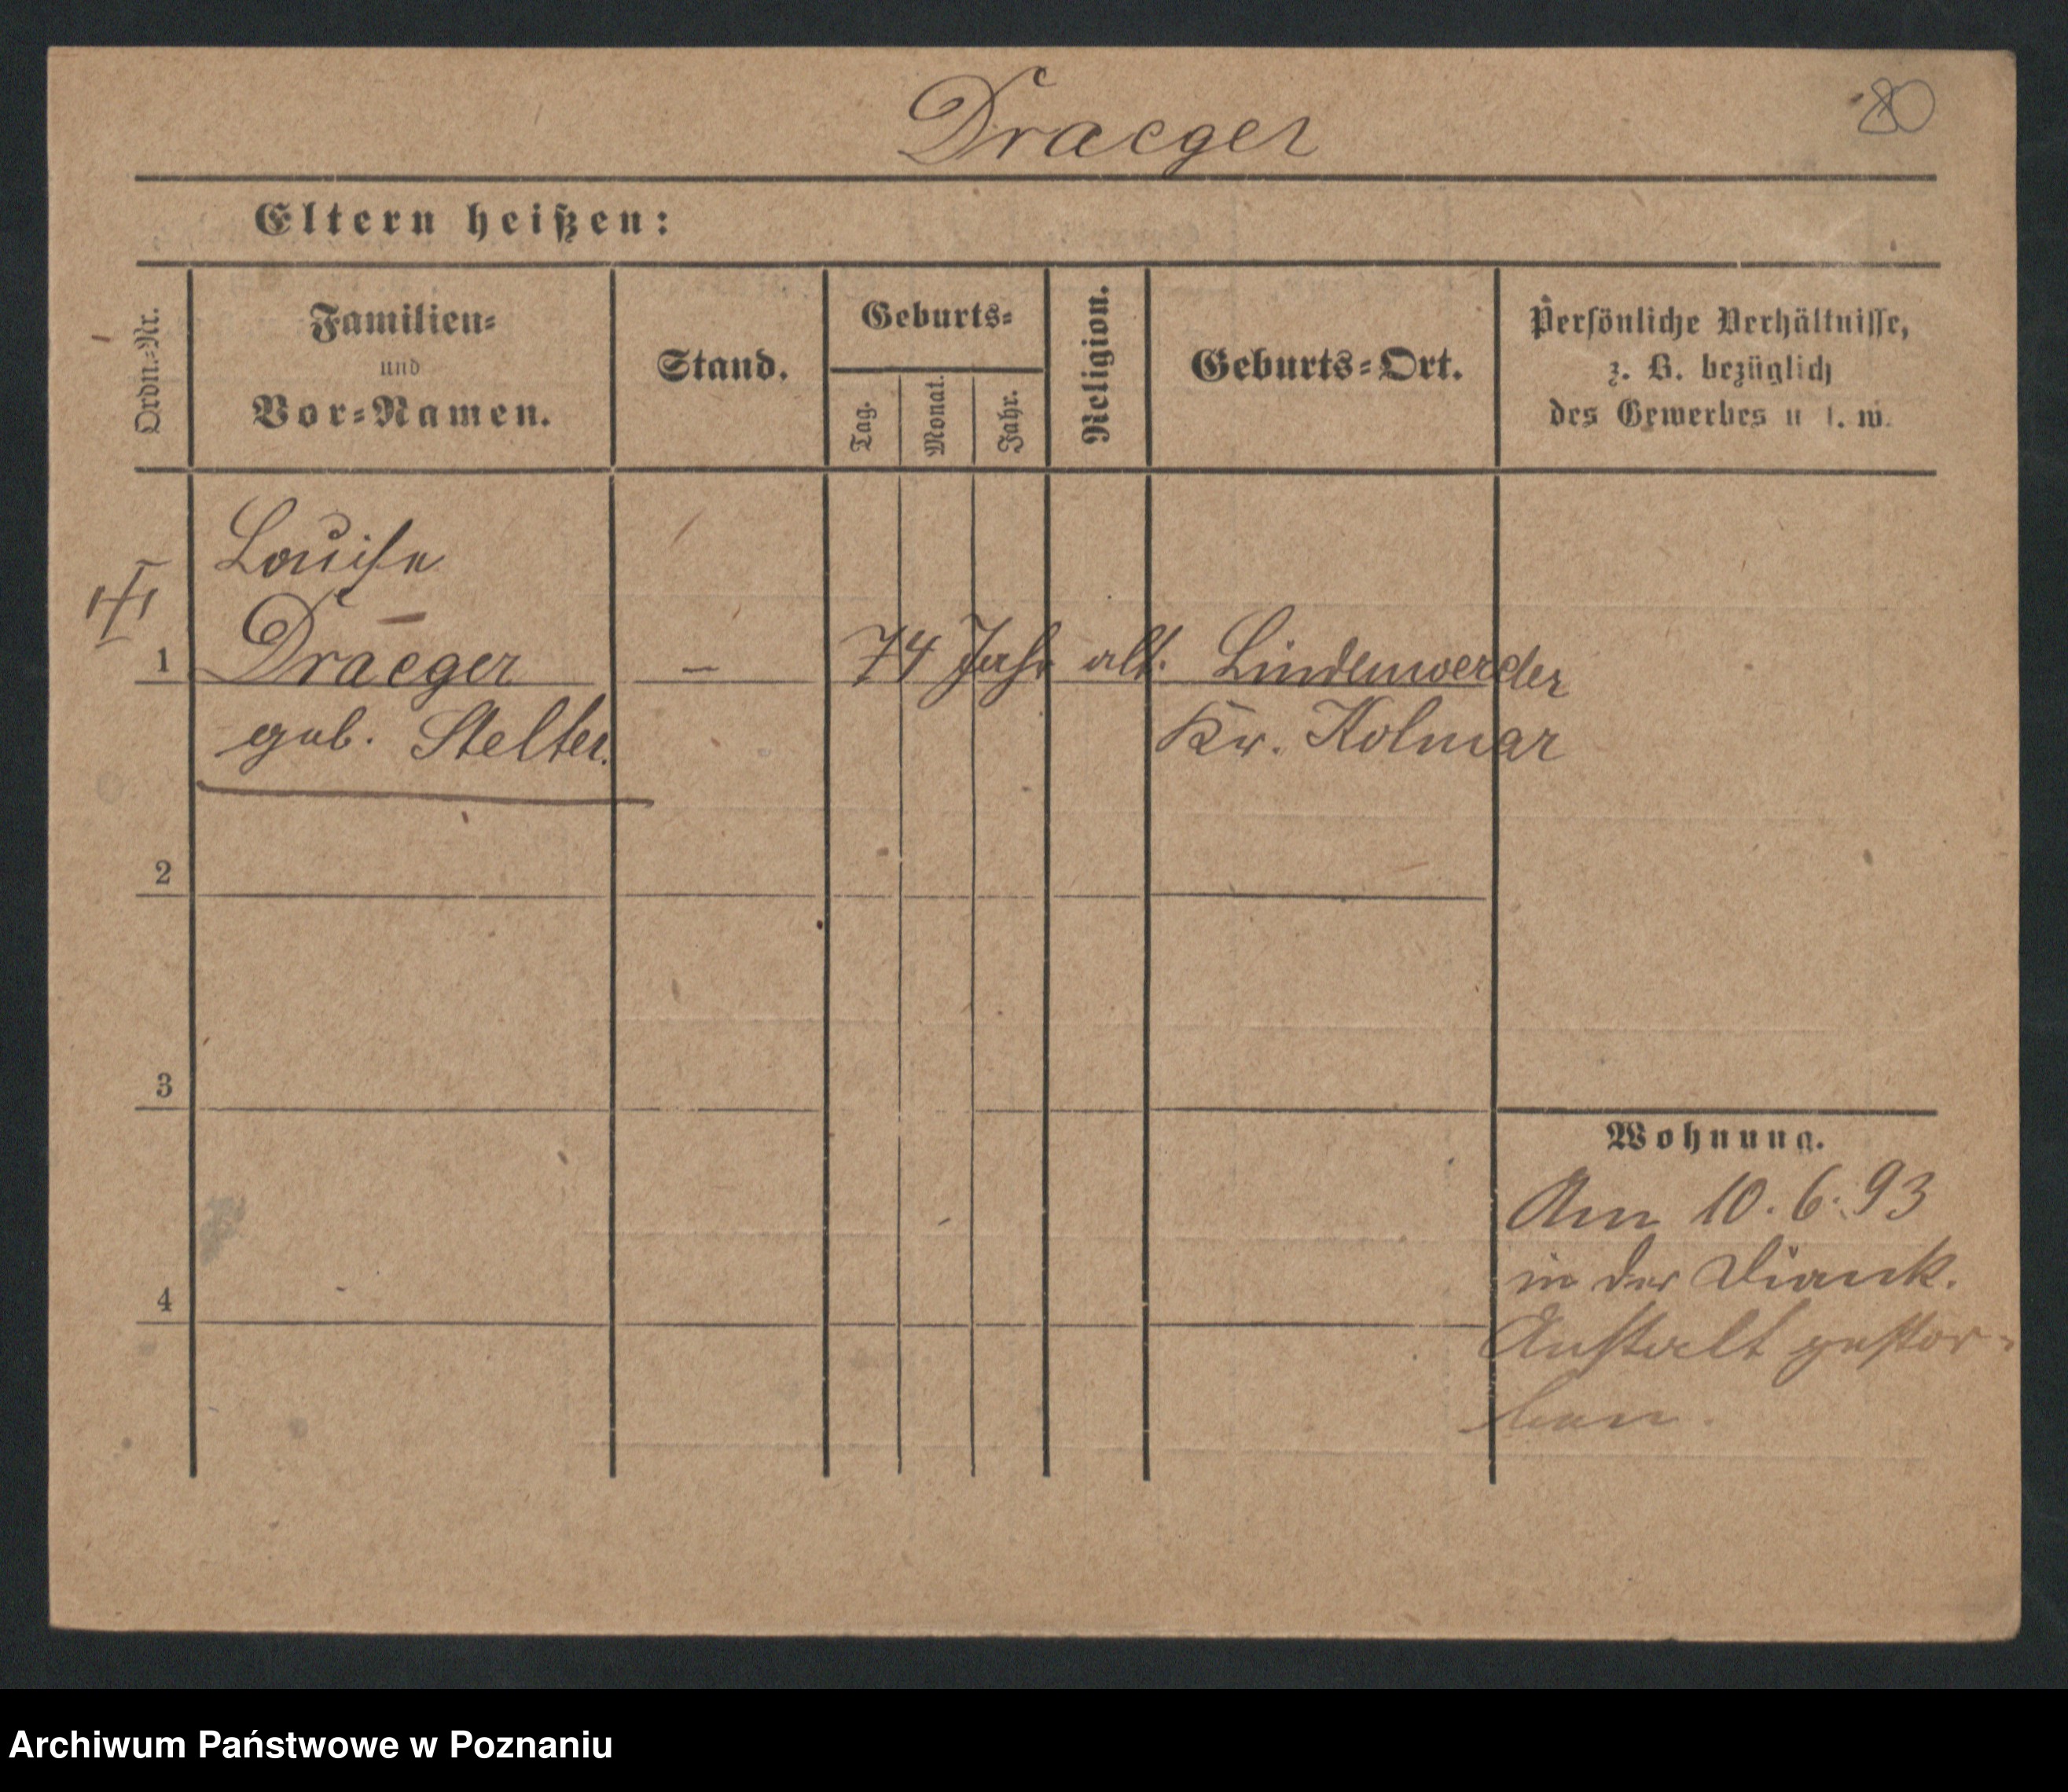 Draeger
80
Eltern heißen:
Ordn.-Nr.
Familien-
und
Vor-Namen.
Stand.
Geburts-
Tag.
Monat.
Jahr.
Religion.
Geburts-Ort.
Persönliche Verhältnisse,
z. B. bezüglich
des Gewerbes u s. w.
Louise
1 Draeger – 74 Jahr alt. Lindenwerder
geb. Stelter. Kr. Kolmar
2
3
Wohnung.
Am 10.6.93
in der Diank.
4
Anstalt gestor-
ben.
Archiwum Państwowe w Poznaniu